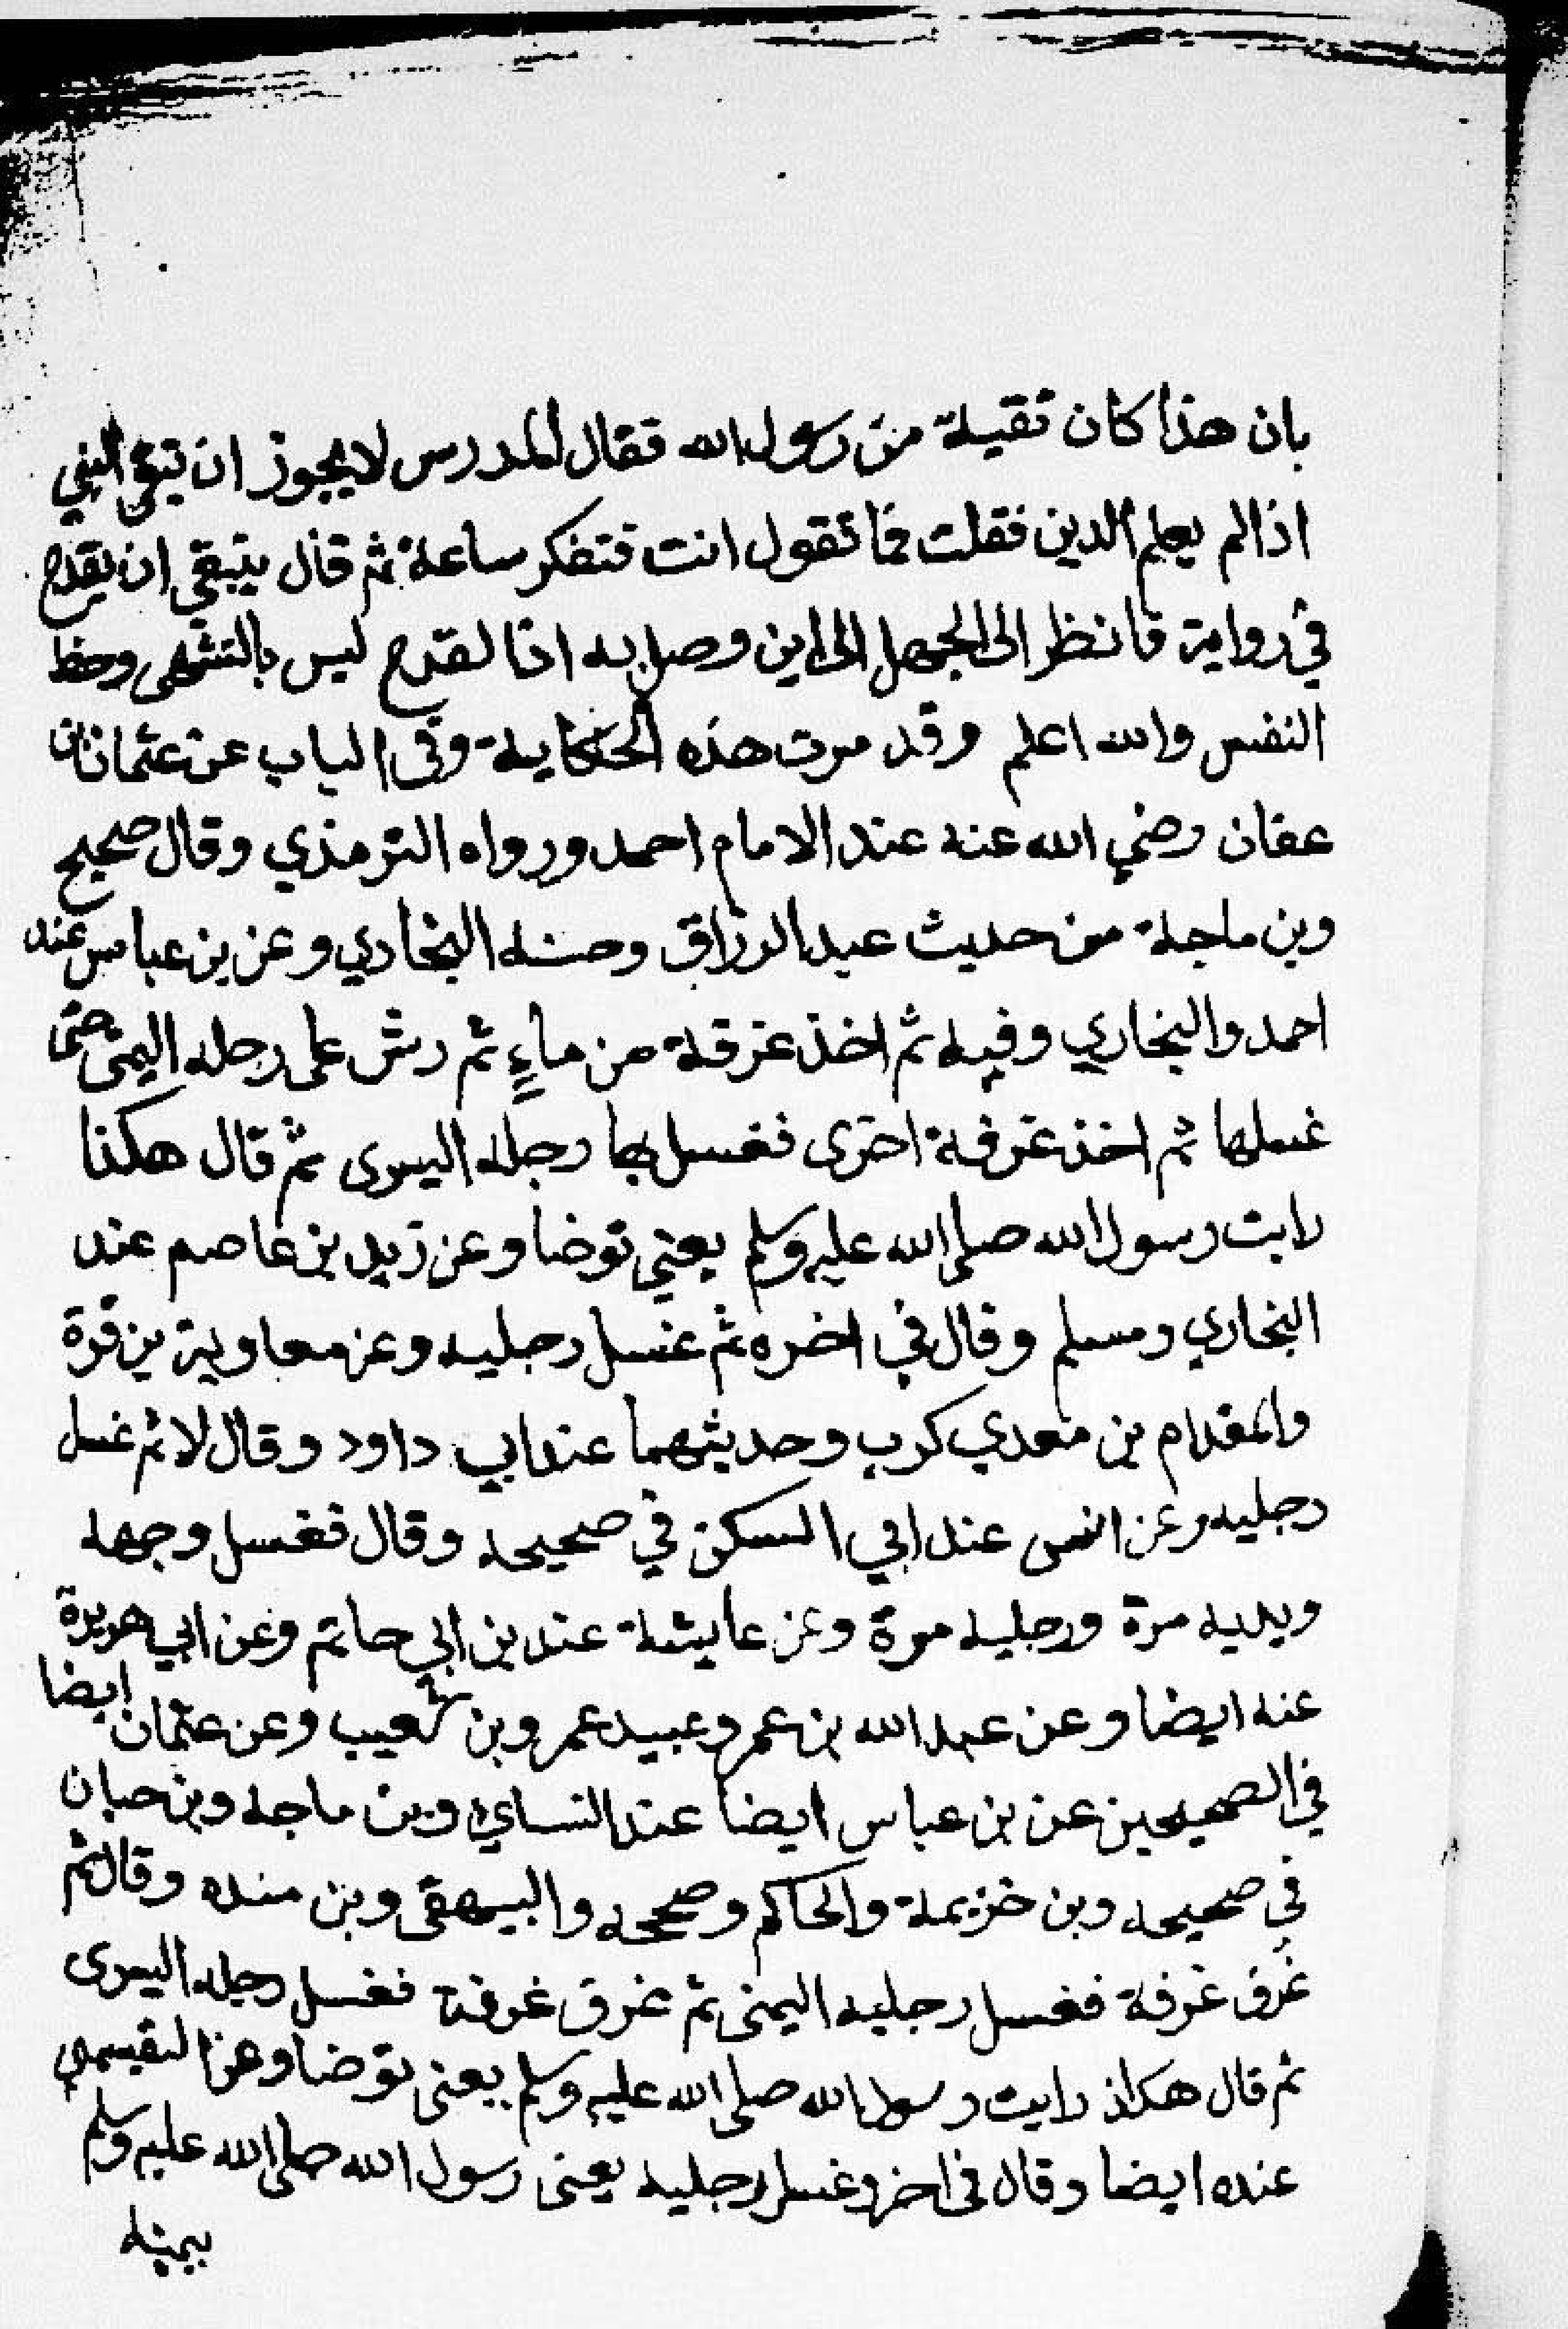 بان هذا كان تقية من رسول الله فقال المدرس لا يجوز ان يتقي النبي
اذا لم يعلم الدين فقلت فما تقول انت فتفكر ساعة ثم قال ينبغي ان يقدح
في رواية فانظر الى الجهل الى اين وصل به اذا لقدح ليس بالتشهى وحظ
النفس والله اعلم وقد مرت هذه الحكاية وفى الباب عن عثمان بن
عفان رضي الله عنه عند الامام احمد ورواه الترمذي وقال صحيح
وبن ماجة من حديث عبد الرزاق وحسنه البخاري وعن بن عباس عند
احمد والبخاري وفيه ثم اخذ غرفة من ماءٍ ثم رش على رجله اليمنى حتى
غسلها ثم اخذ غرفة اخرى فغسل بها رجله اليسرى ثم قال هكذا
رايت رسول الله صلى الله عليه وسلم يعني توضا وعن زيد بن عاصم عند
البخاري ومسلم وقال في اخره ثم غسل رجليه وعن معاوية بن قرة
والمقدام بن معدي كرب وحديثهما عند ابي داود وقال لا ثم غسل
رجليه وعن انس عند ابي السكن في صحيحه وقال فغسل وجهه
ويديه مرة ورجليه مرة وعن عايشة عند بن ابي حاتم وعن ابي هريرة
عنه ايضا وعن عبد الله بن عمر وعبيد عمر وبن شعيب وعن عثمان ايضا
في الصحيحين عن بن عباس ايضا عند النساي وبن ماجه وبن حبان
في صحيحه وبن خزيمة والحاكم وصححه والبيهقى وبن منده وقال ثم
غرف غرفة فغسل رجليه اليمنى ثم غرق غرفة فغسل رجله اليسرى
ثم قال هكذا رايت رسول الله صلى الله عليه وسلم يعنى توضا وعن
عنده ايضا وقال في اخره وغسل رجليه يعنى رسول الله صلى الله عليه وسلم
بيمينه